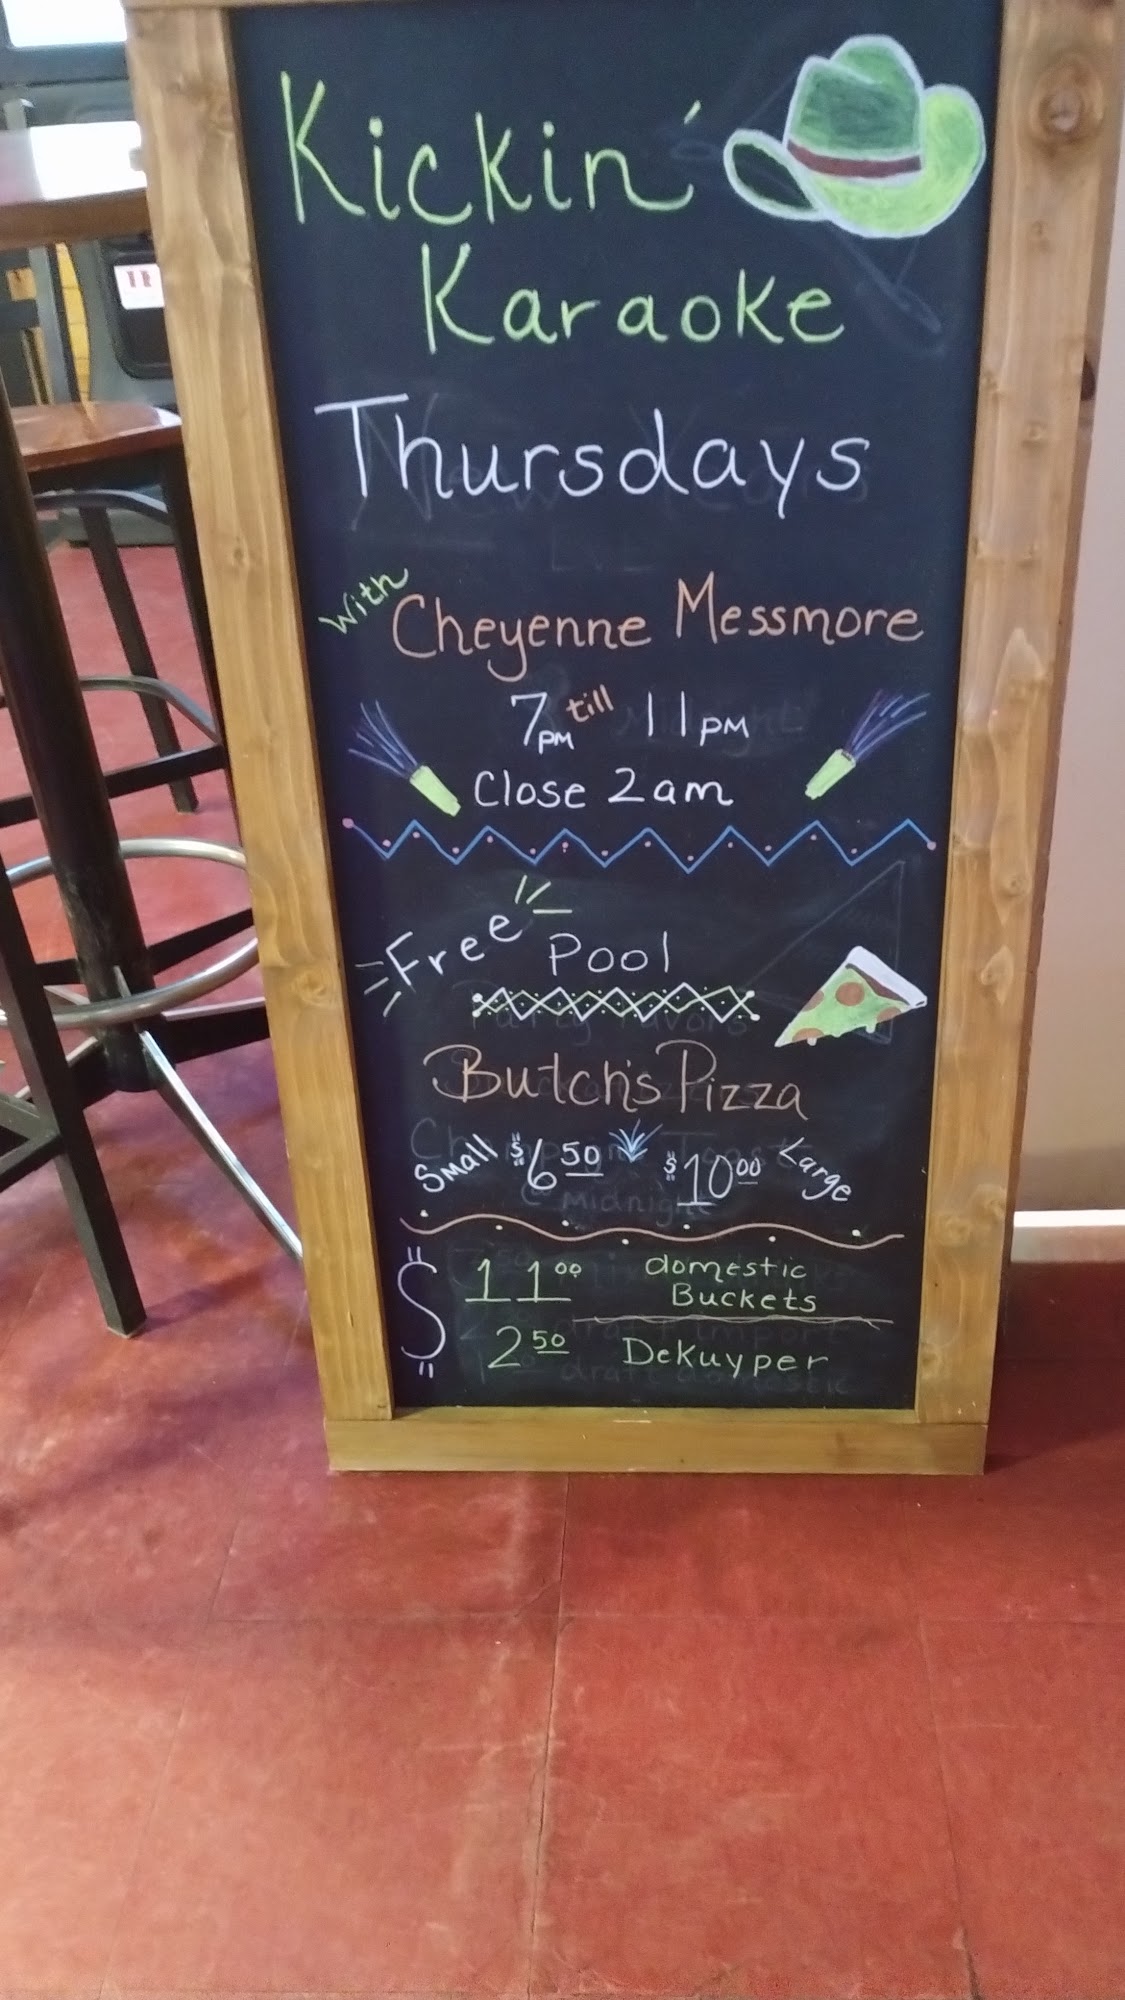 Kickin'
Karaoke
Thursdays
With Cheyenne Messmore
7pm till 11pm
Close 2am
Free Pool
Butch's Pizza
Small $6.50 $10.00 Large
$ 11.00 domestic Buckets
2.50 DeKuyper